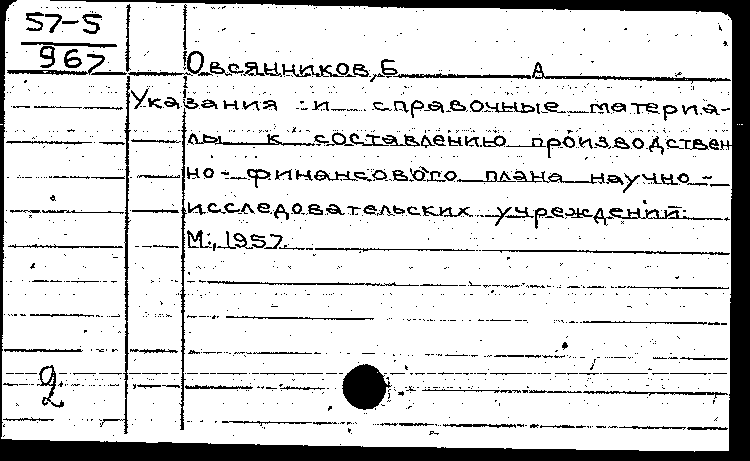 57-5
967
Овсянников, Б А
Указания и справочные материа-
лы к составлению производствен
но-финансового плана научно-
исследовательских учреждений.
М., 1957.
2